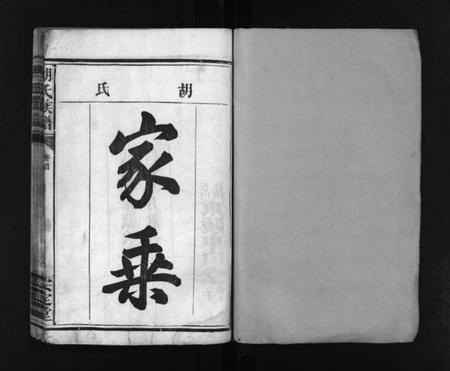 胡氏
家乘
胡氏族譜
卷首